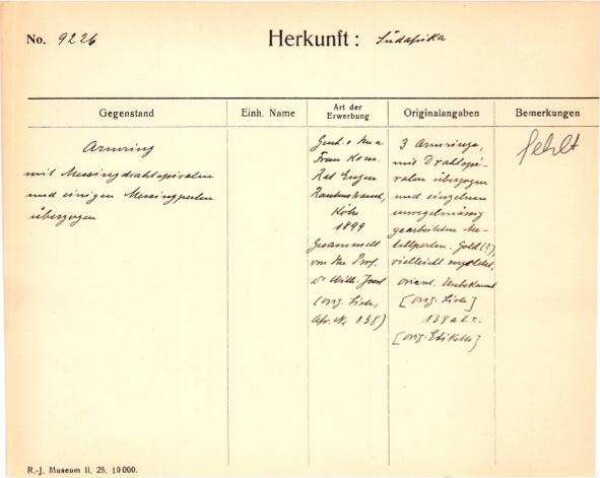 No. 9226 Herkunft: Südafrika
Gegenstand
Einh. Name
Art der
Erwerbung
Originalangaben
Bemerkungen
Armring
mit Messingdrahtspiralen
und einigen Messingperlen
überzogen
Gesch. v. Hn u.
Frau Kom.
Rat Eugen
Rautenstrauch,
Köln
1899
Gesammelt
von Hn Prof.
Dr Wilh. Joest
(orig. Liste,
Afr. N. 138)
3 Armringe,
mit Drahtspi-
ralen überzogen
und einzelnen
unregelmässig
gearbeiteten Me-
tallperlen. Gold (?),
vielleicht vergoldet,
orient. Unbekannt
[orig. Liste]
138 a b c.
[orig. Etikette]
fehlt
R.-J. Museum II. 25. 10 000.